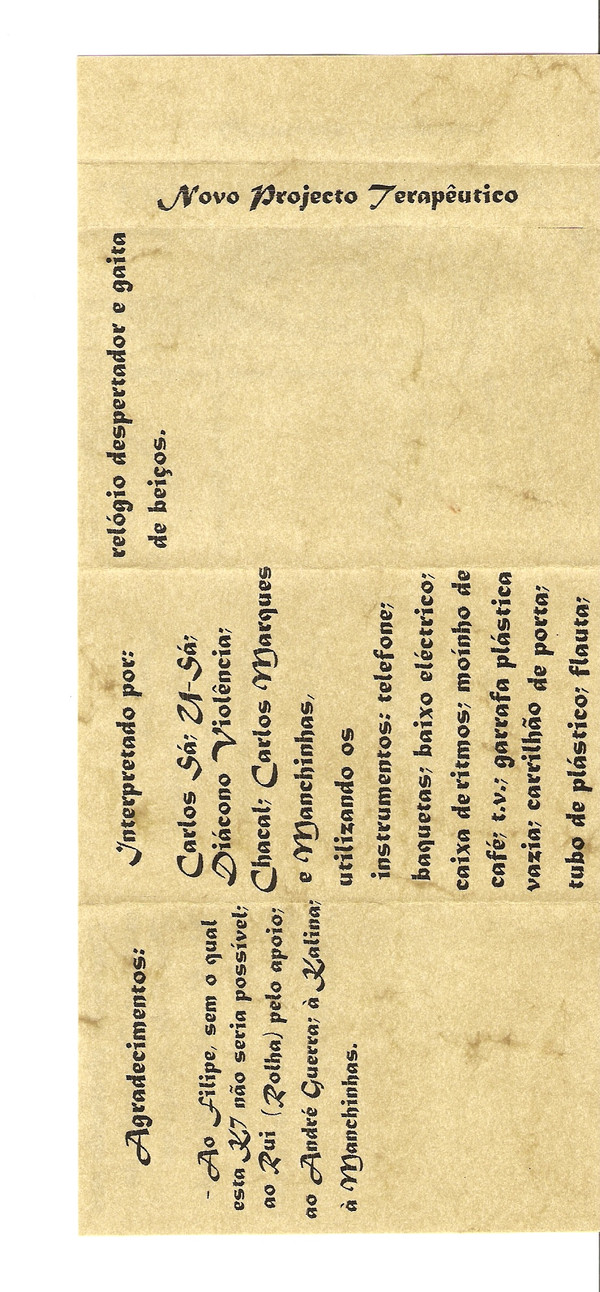 Novo Projecto Terapêutico
Agradecimentos:
- Ao Filipe, sem o qual
esta K7 não seria possível;
ao Rui (Rolha) pelo apoio;
ao André Guerra; à Kalina;
à Manchinhas.
Interpretado por:
Carlos Sá; U-Sá;
Diácono Violência;
Chacal; Carlos Marques
e Manchinhas,
utilizando os
instrumentos: telefone;
baquetas; baixo eléctrico;
caixa de ritmos; moínho de
café; t.v.; garrafa plástica
vazia; carrilhão de porta;
tubo de plástico; flauta;
relógio despertador e gaita
de beiços.